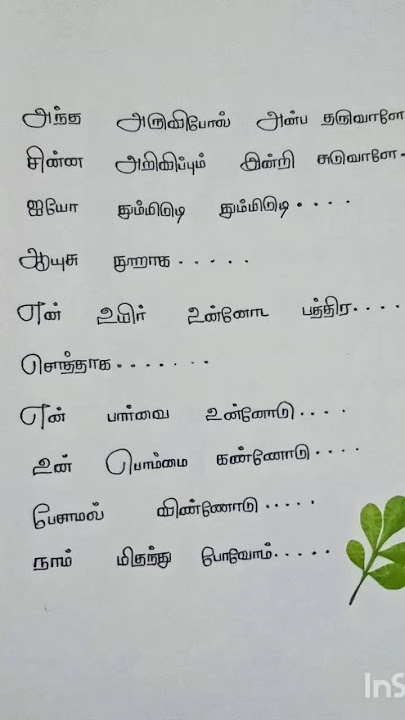 அந்த அருவிபோல் அன்ப தருவாளே
சின்ன அறிவிப்பும் இன்றி சுடுவாளே-
ஐயோ தும்மிடுடி தும்மிடுடி....
ஆயுசு நூறாக.....
என் உயிர் உன்னோட பத்திர....
சொத்தாக.......
என் பார்வை உன்னோடு....
உன் பொம்மை கண்ணோடு....
பேசாமல் விண்ணோடு.....
நாம் மிதந்து போவோம்......
InS